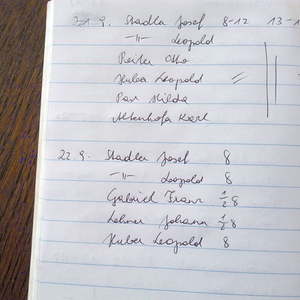 21. 9. Stadler Josef 8-12 13-1
-"- Leopold
Reiter Otto
Huber Leopold
Hilda
Altenhofer Karl
22. 9. Stadler Josef 8
-"- Leopold 8
Gabriel Franz ½ 8
Lehner Johann ½ 8
Huber Leopold 8